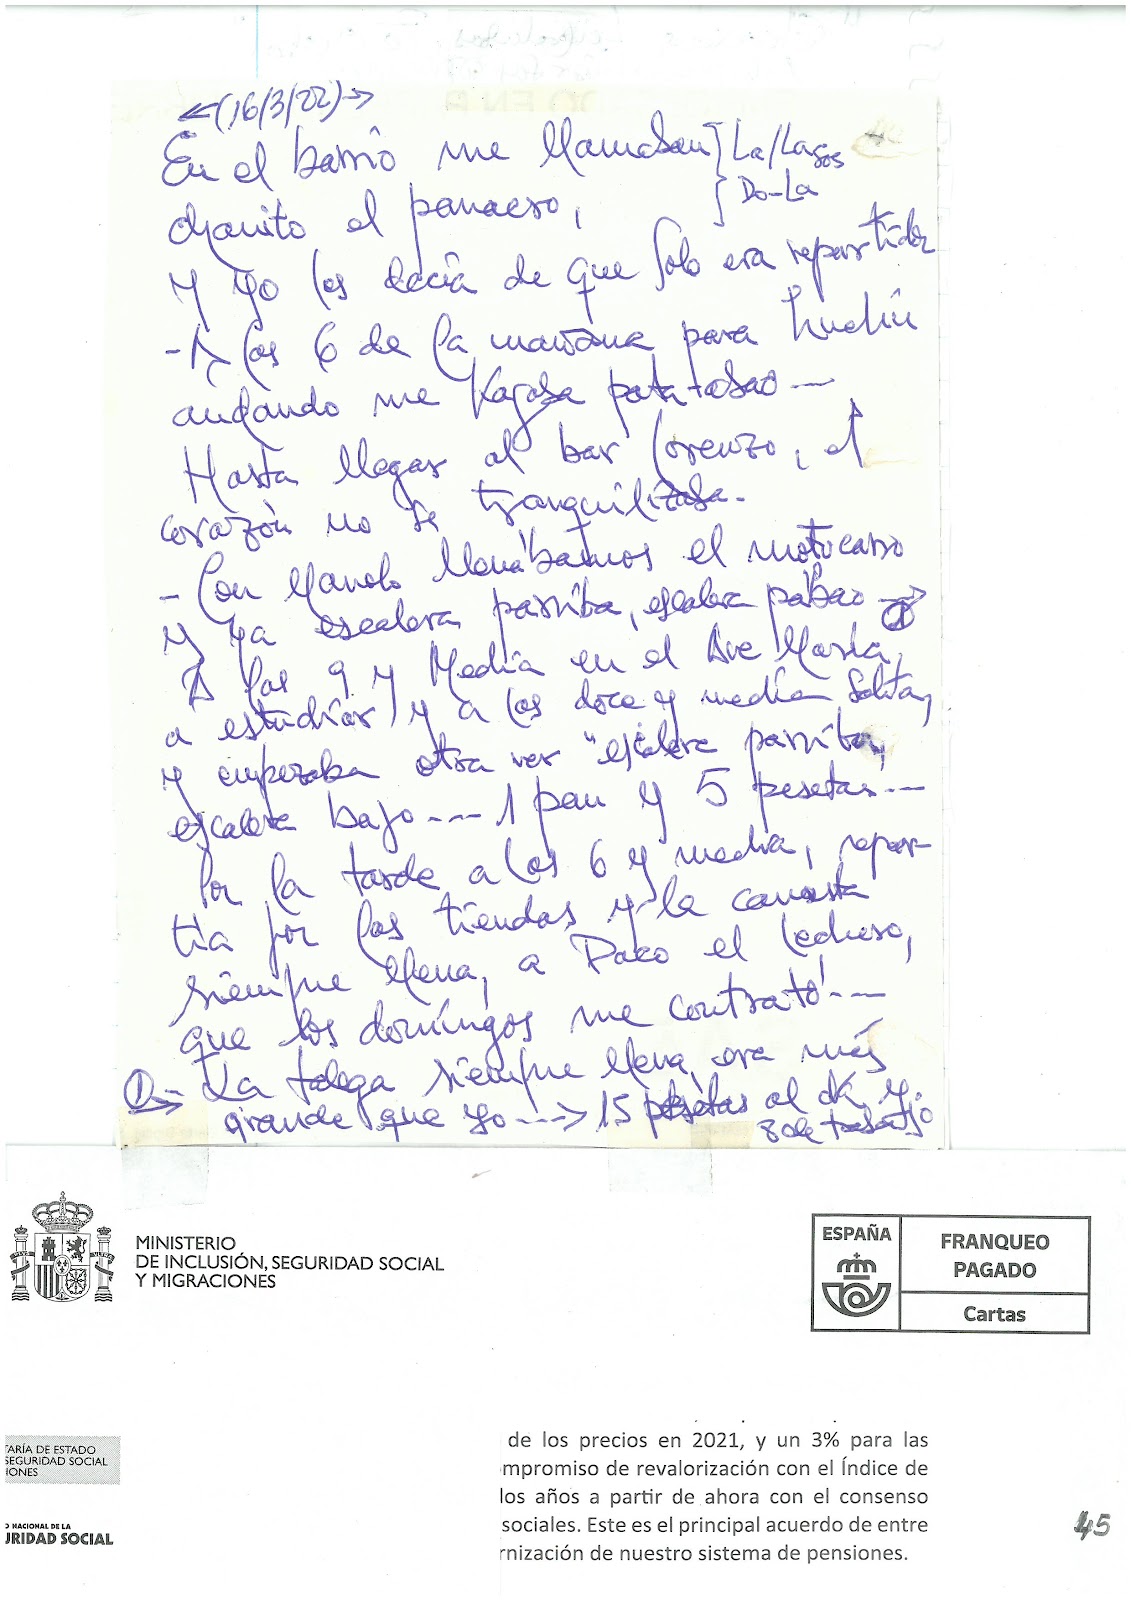 ←(16/3/22)→
En el barrio me llamaban } La/Lagos
chanito el panaero, } Do-La
y yo les decía de que solo era repartidor
-A las 6 de la mañana, para Luchin
andando me Kagaba patatabao ---
Hasta llegar al bar Lorenzo, el
corazón no se tranquilizaba.
- Con Manolo llenábamos el motocarro
y ya escalera parriba, escalera pabao → ①
A las 9 y Media en el Ave María,
a estudiar, y a las doce y media salita,
y empezaba otra vez "escalera parriba,
escalera bajo --- 1 pan y 5 pesetas ---
Por la tarde a las 6 y media, repar-
tia por las tiendas y la canasta
siempre llena, a Paco el Lechero,
que los domingos me contrató ---
①→ - La talega siempre llena, era más
grande que yo ---> 15 pesetas al día y
de trabajo
MINISTERIO
DE INCLUSIÓN, SEGURIDAD SOCIAL
Y MIGRACIONES
ESPAÑA
FRANQUEO
PAGADO
Cartas
TARÍA DE ESTADO
SEGURIDAD SOCIAL
IONES
O NACIONAL DE LA
URIDAD SOCIAL
de los precios en 2021, y un 3% para las
mpromiso de revalorización con el Índice de
los años a partir de ahora con el consenso
sociales. Este es el principal acuerdo de entre
rnización de nuestro sistema de pensiones.
45